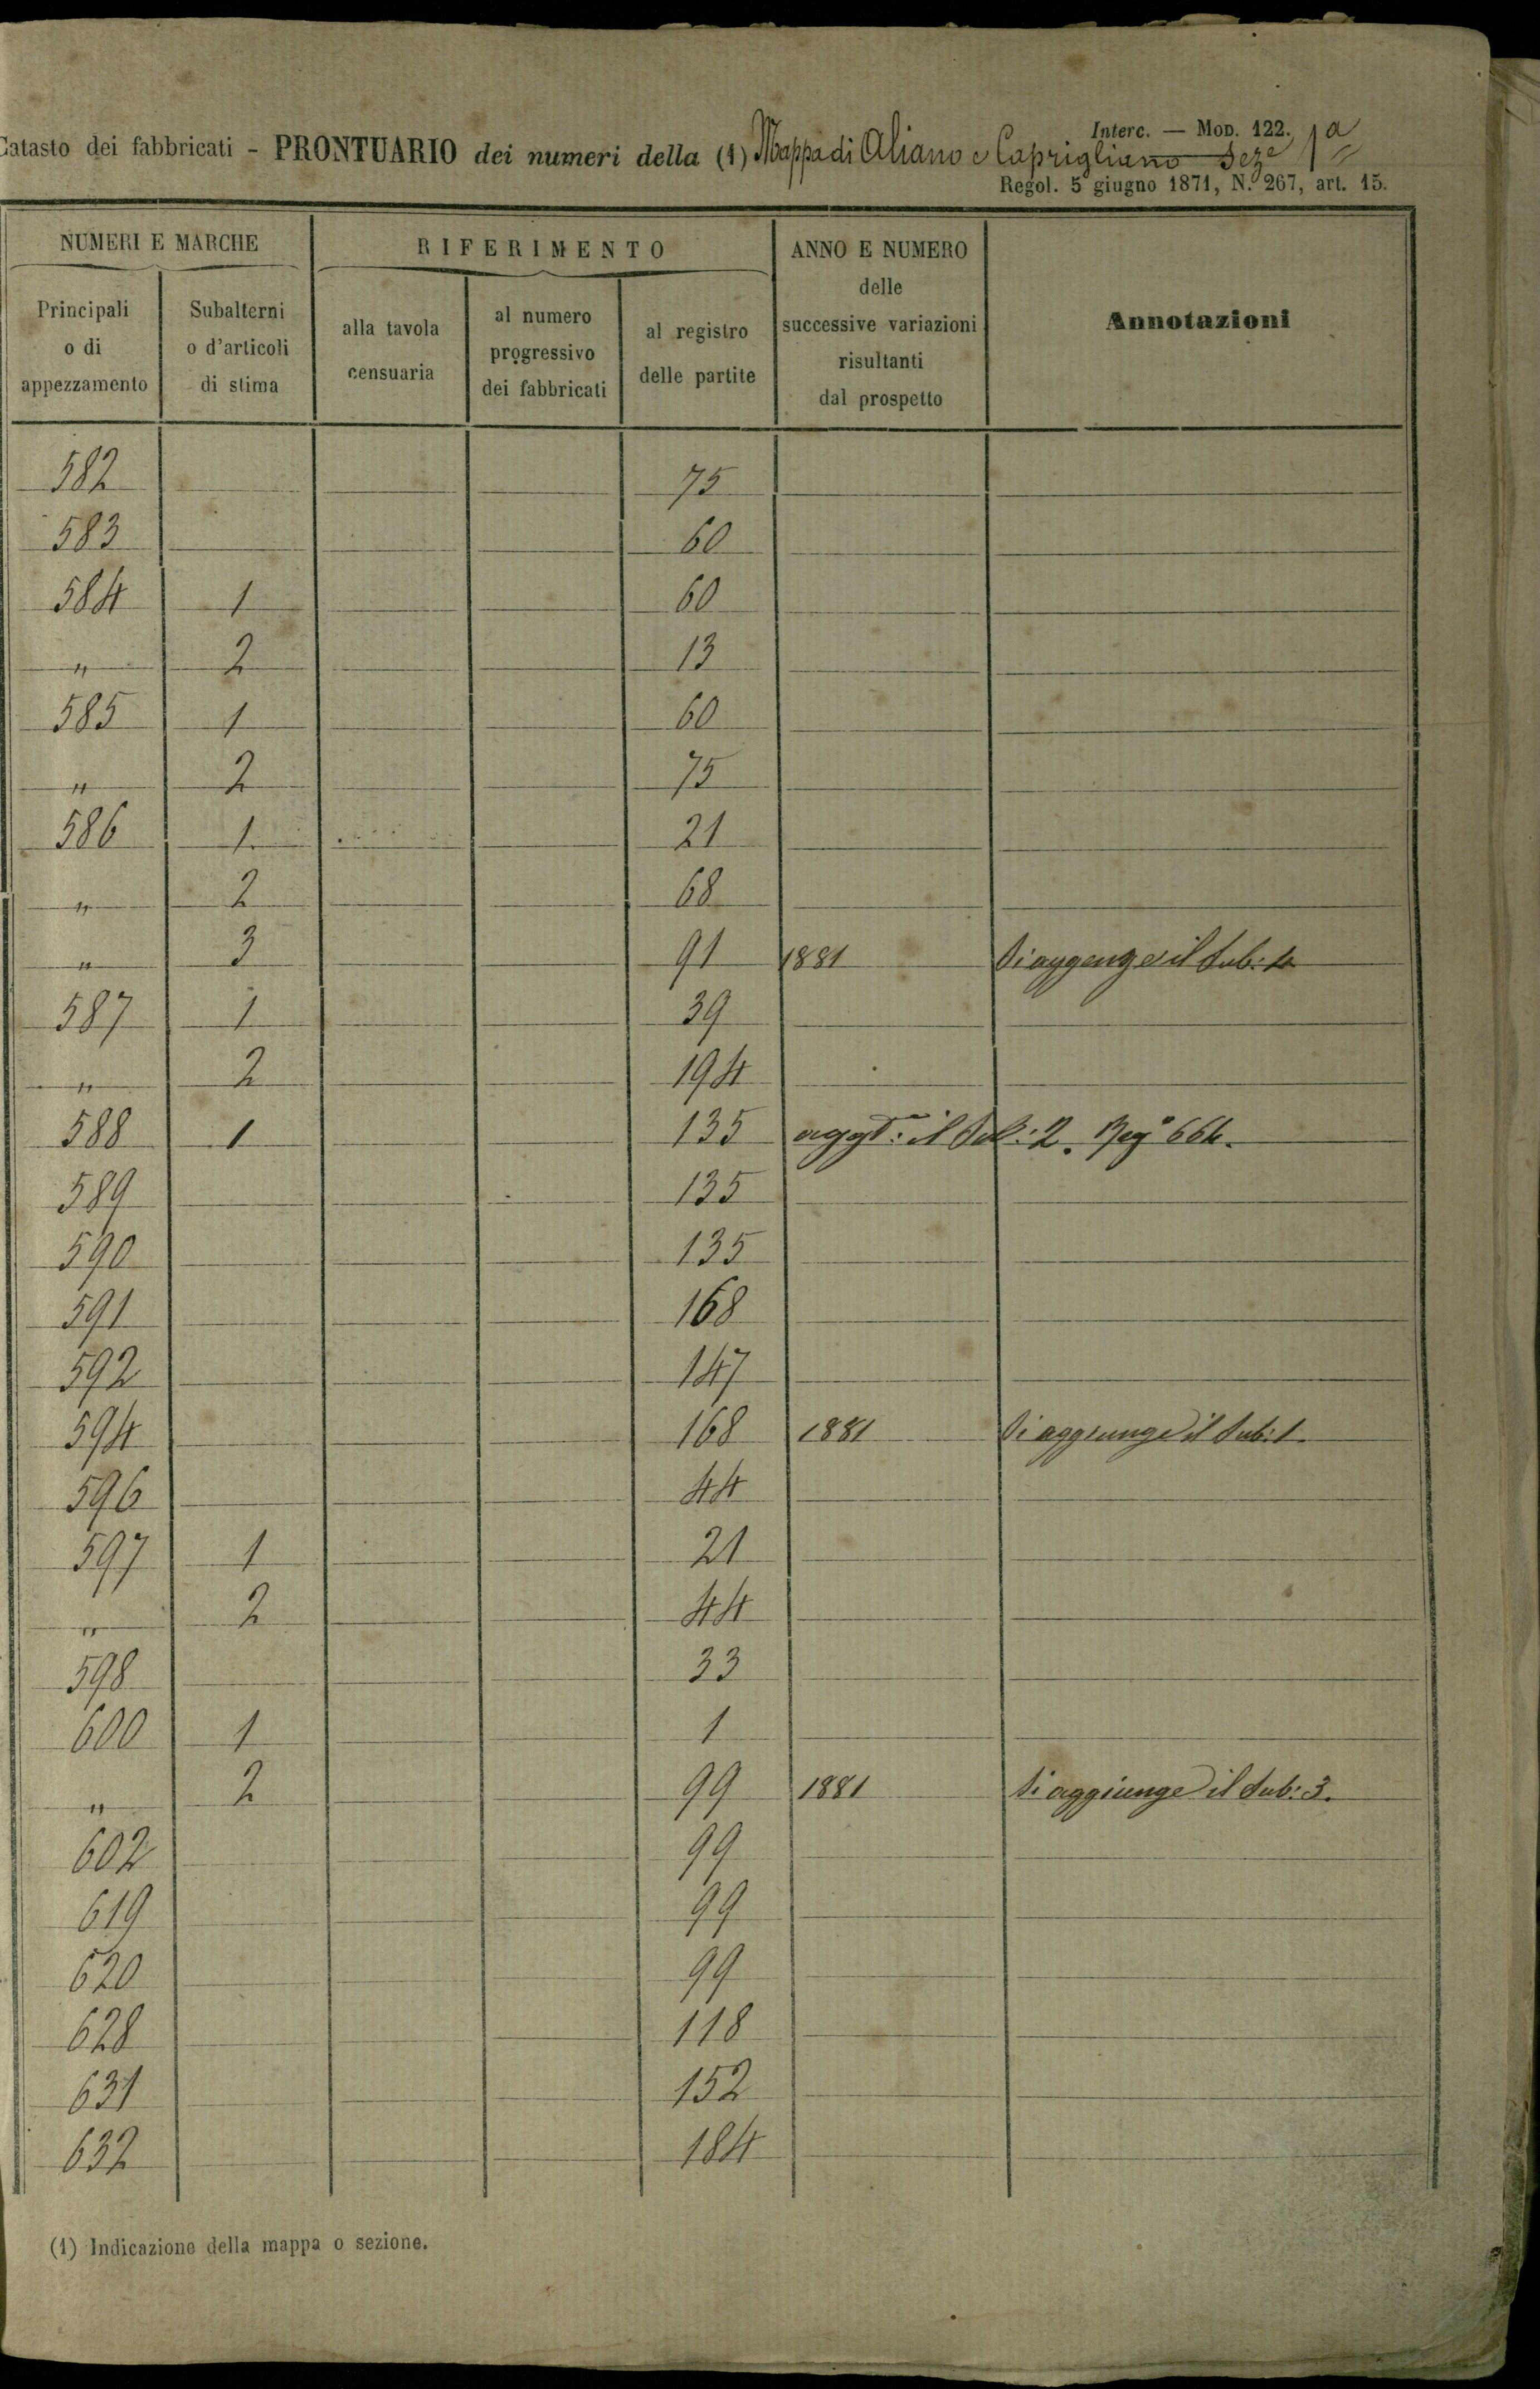 Catasto dei fabbricati - PRONTUARIO dei numeri della (1) Mappa di Aliano e Caprigliano Seze 1a
Interc. — Mod. 122.
Regol. 5 giugno 1871, N. 267, art. 15.
NUMERI E MARCHE
Principali o di appezzamento
Subalterni o d'articoli di stima
RIFERIMENTO
alla tavola censuaria
al numero progressivo dei fabbricati
al registro delle partite
ANNO E NUMERO delle successive variazioni risultanti dal prospetto
Annotazioni
582 75
583 60
584 1 60
" 2 13
585 1 60
" 2 75
586 1. 21
" 2 68
" 3 91 1881 Si aggenge il Sub: 4
587 1 39
" 2 194
588 1 135 aggt: il Sub: 2. Rego 664.
589 135
590 135
591 168
592 147
594 168 1881 Si aggiunge il Sub: 1.
596 44
597 1 21
" 2 44
598 33
600 1 1
" 2 99 1881 Si aggiunge il Sub: 3.
602 99
619 99
620 99
628 118
631 152
632 184
(1) Indicazione della mappa o sezione.